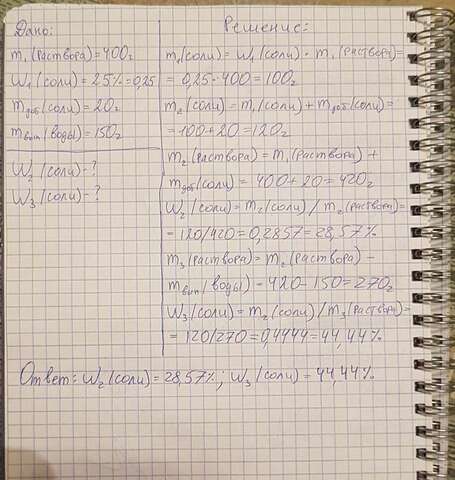 Дано:
m₁(раствора)=400г
W₁(соли)=25%=0,25
mдоб(соли)=20г
mвып(воды)=150г
W₂(соли)-?
W₃(соли)-?
Решение:
m₁(соли)=W₁(соли)·m₁(раствора)=
=0,25·400=100г
m₂(соли)=m₁(соли)+mдоб(соли)=
=100+20=120г
m₂(раствора)=m₁(раствора)+
mдоб(соли)=400+20=420г
W₂(соли)=m₂(соли)/m₂(раствора)=
=120/420=0,2857=28,57%
m₃(раствора)=m₂(раствора)-
mвып(воды)=420-150=270г
W₃(соли)=m₂(соли)/m₃(раствора)=
=120/270=0,4444=44,44%
Ответ: W₂(соли)=28,57%; W₃(соли)=44,44%